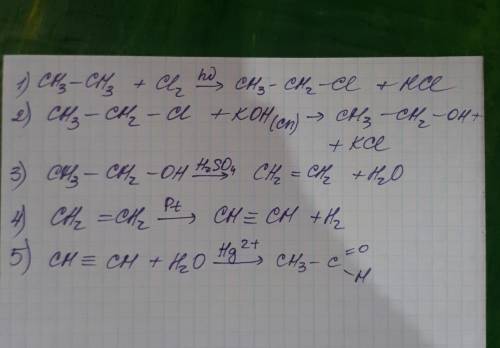 1) CH₃-CH₃ + Cl₂ —hν→ CH₃-CH₂-Cl + HCl
2) CH₃-CH₂-Cl + KOH(сп) → CH₃-CH₂-OH +
+ KCl
3) CH₃-CH₂-OH —H₂SO₄→ CH₂=CH₂ + H₂O
4) CH₂=CH₂ —Pt→ CH≡CH + H₂
5) CH≡CH + H₂O —Hg²⁺→ CH₃-C=O
H